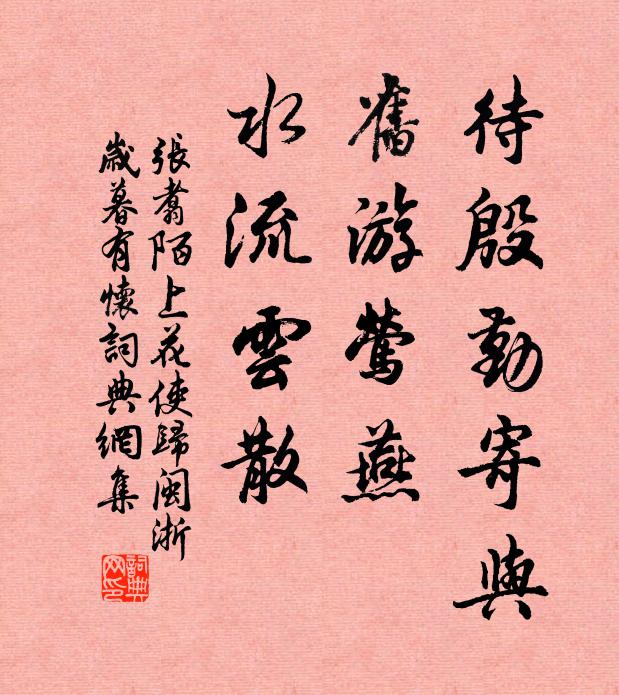 待殷勤寄與
舊游鶯燕
水流雲散
張翥陌上花使歸閩浙
歲暮有懷詞典網集
詞典
网印